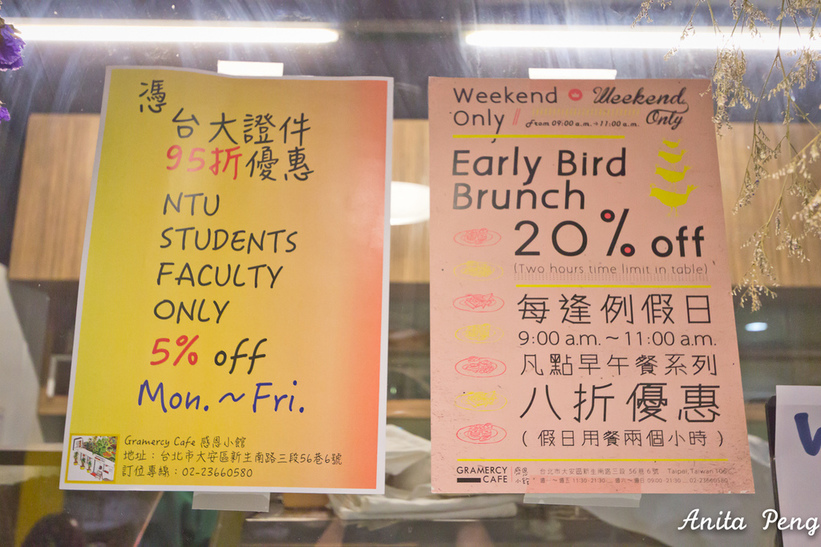 憑
台大證件
95折優惠
NTU
STUDENTS
FACULTY
ONLY
5% off
Mon. ~ Fri.
Gramercy Cafe 感恩小館
地址：台北市大安區新生南路三段56巷6號
訂位專線：02-23660580
Weekend Weekend
Only Only
From 09:00 a.m. ~ 11:00 a.m.
Early Bird
Brunch
20% off
(Two hours time limit in table)
每逢例假日
9:00 a.m. ~ 11:00 a.m.
凡點早午餐系列
八折優惠
( 假日用餐兩個小時 )
GRAMERCY
CAFE
感恩
小館
台北市大安區新生南路三段 56巷 6號 Taipei, Taiwan
Anita Peng